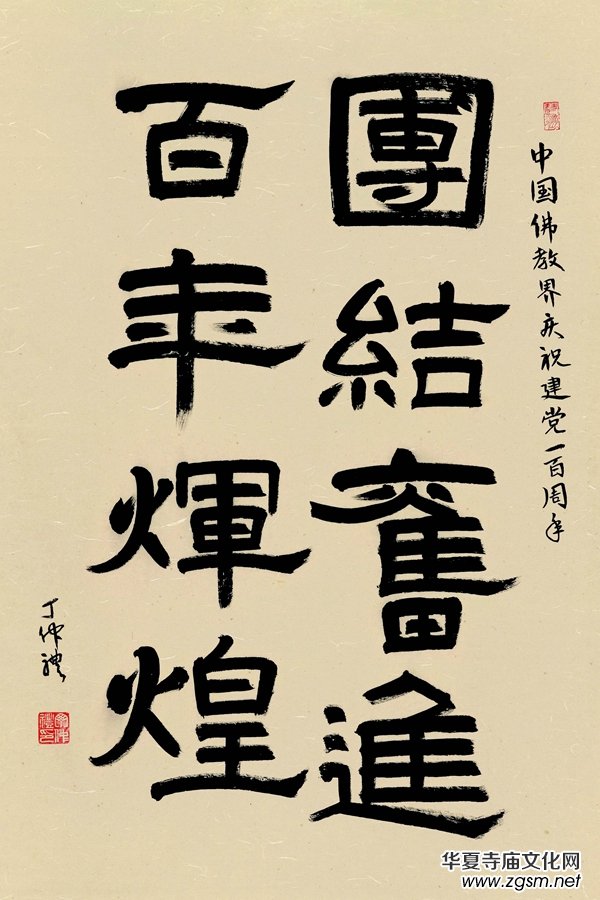 中国佛教界庆祝建党一百周年
團結奮進
百年輝煌
丁仲禮
华夏寺庙文化网
www.zgsm.net